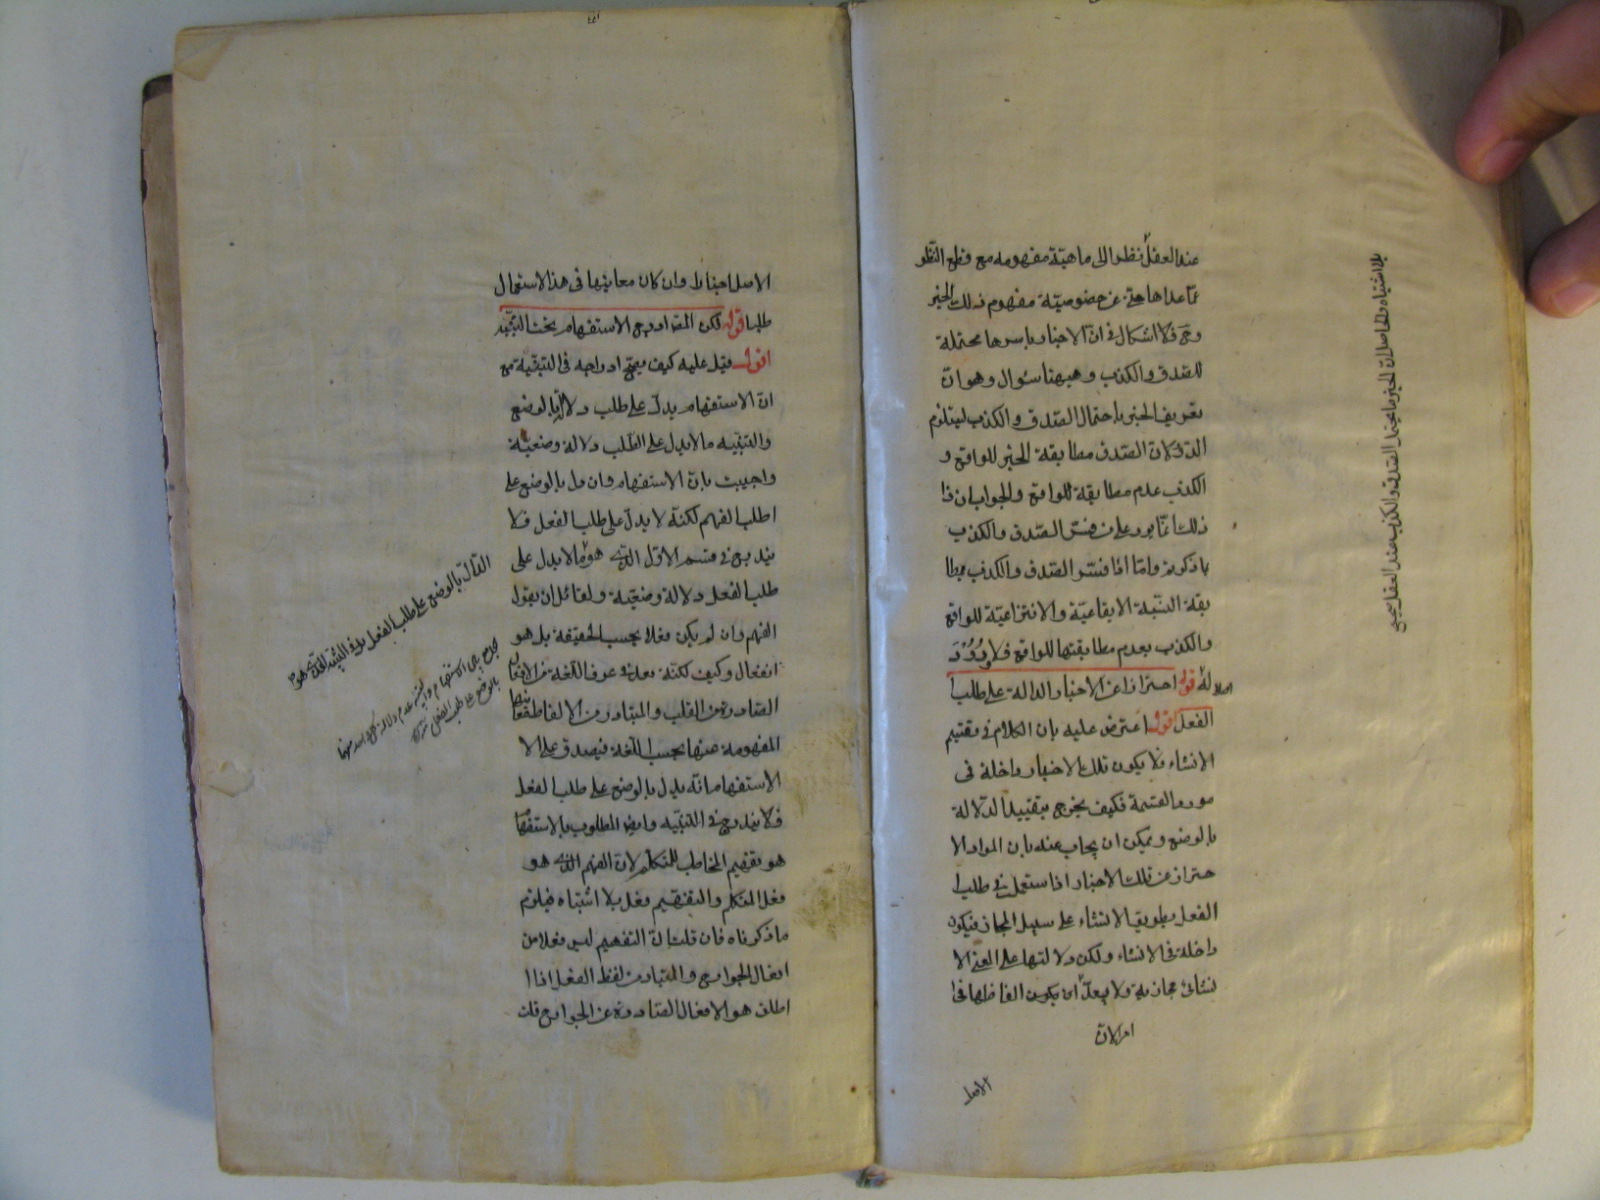 عند العقل نظرا الى ماهية مفهومه مع قطع النظر
عما عداها حتى عن خصوصية مفهوم ذلك الخبر
وح فلا اشكال في ان الاخبار باسرها محتملة
للصدق والكذب وهيهنا سؤال وهو ان
تعريف الخبر باحتمال الصدق والكذب ليستلزم
الدور لان الصدق مطابقة الخبر للواقع و
الكذب عدم مطابقة للواقع والجواب ان ذا
ذلك انما يرد على من فسر الصدق والكذب
بما ذكرتم واما اذا فسر الصدق والكذب بمطا
بقة النسبة الايقاعية والانتزاعية للواقع
والكذب بعدم مطابقتها للواقع فلا ورود
له قوله احترازا عن الاخبار الدالة على طلب
الفعل اقول اعترض عليه بان الكلام في تقسيم
الانشاء فلا يكون تلك الاخبار داخلة في
مورد القسمة فكيف يخرج بتقييد الدلالة
بالوضع ويمكن ان يجاب عنه بان المراد الا
حتراز عن تلك الاخبار اذا استعمل في طلب
الفعل بطريق الانشاء على سبيل المجاز فيكون
داخلة في الانشاء ولكن دلالتها على المعنى الا
نشائى مجازية ولا يعد ان يكون الفاظها في
الاصل
الاصل اخبارا وان كان معانيها في هذا الاستعمال
طلبا قوله لكن المص ادرج الاستفهام تحت التنبيه
اقول قيل عليه كيف يصح ادراجه في التنبيه مع
ان الاستفهام يدل على طلب دلالة بالوضع
والتنبيه ما لا يدل على الطلب دلالة وضعية
واجيب بان الاستفهام وان دل بالوضع على
اطلب الفهم لكنه لا يدل على طلب الفعل فلا
يندرج في قسم الاول الذى هو ما لا يدل على
طلب الفعل دلالة وضعية ولقائل ان يقول
الفهم وان لم يكن فعلا بحسب الحقيقة بل هو
انفعال وكيف لكنه يعد في عرف اللغة من الافعال
الصادرة من القلب والمتبادر من الالفاظ معانيها
المفهومة عنها بحسب اللغة فيصدق على الا
الاستفهام انه يدل بالوضع على طلب الفعل
فلا يندرج في التنبيه وايض المطلوب بالاستفهام
هو تفهيم المخاطب للمتكلم لان الفهم الذى هو
فعل المتكلم والتفهيم فعل بلا اشتباه فيلزم
ما ذكرناه فان قلت ان التفهيم ليس فعلا من
افعال الجوارح والمتبادر من لفظ الفعل اذا ا
اطلق هو الافعال الصادرة عن الجوارح قلت
الدال بالوضع على طلب الفعل